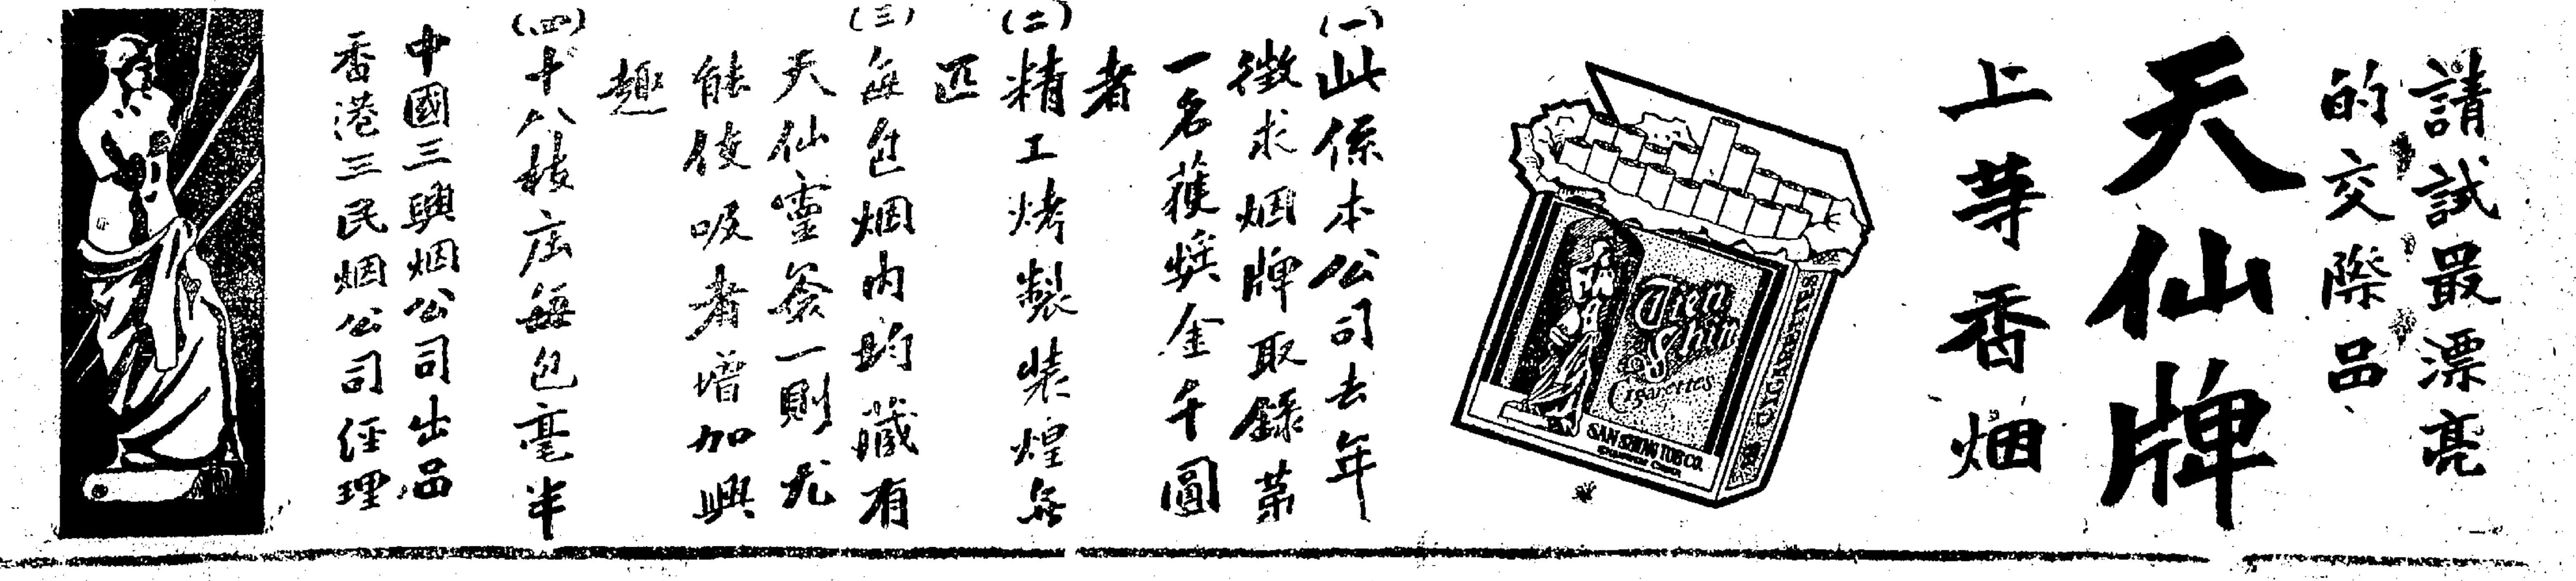 請試最漂亮
的交際品
天仙牌
上等香烟
Tien
Shin
Cigarettes
SAN SHING TOB CO.
CIGARETTES
(一)此係本公司去年
徵求烟牌取錄第
一名獲獎金千圓
者
(二)精工烤製裝煌無
匹
(三)每包烟內均藏有
天仙靈簽一則尤
能使吸者增加興
趣
(四)十八枝庄每包毫半
中國三興烟公司出品
香港三民烟公司經理